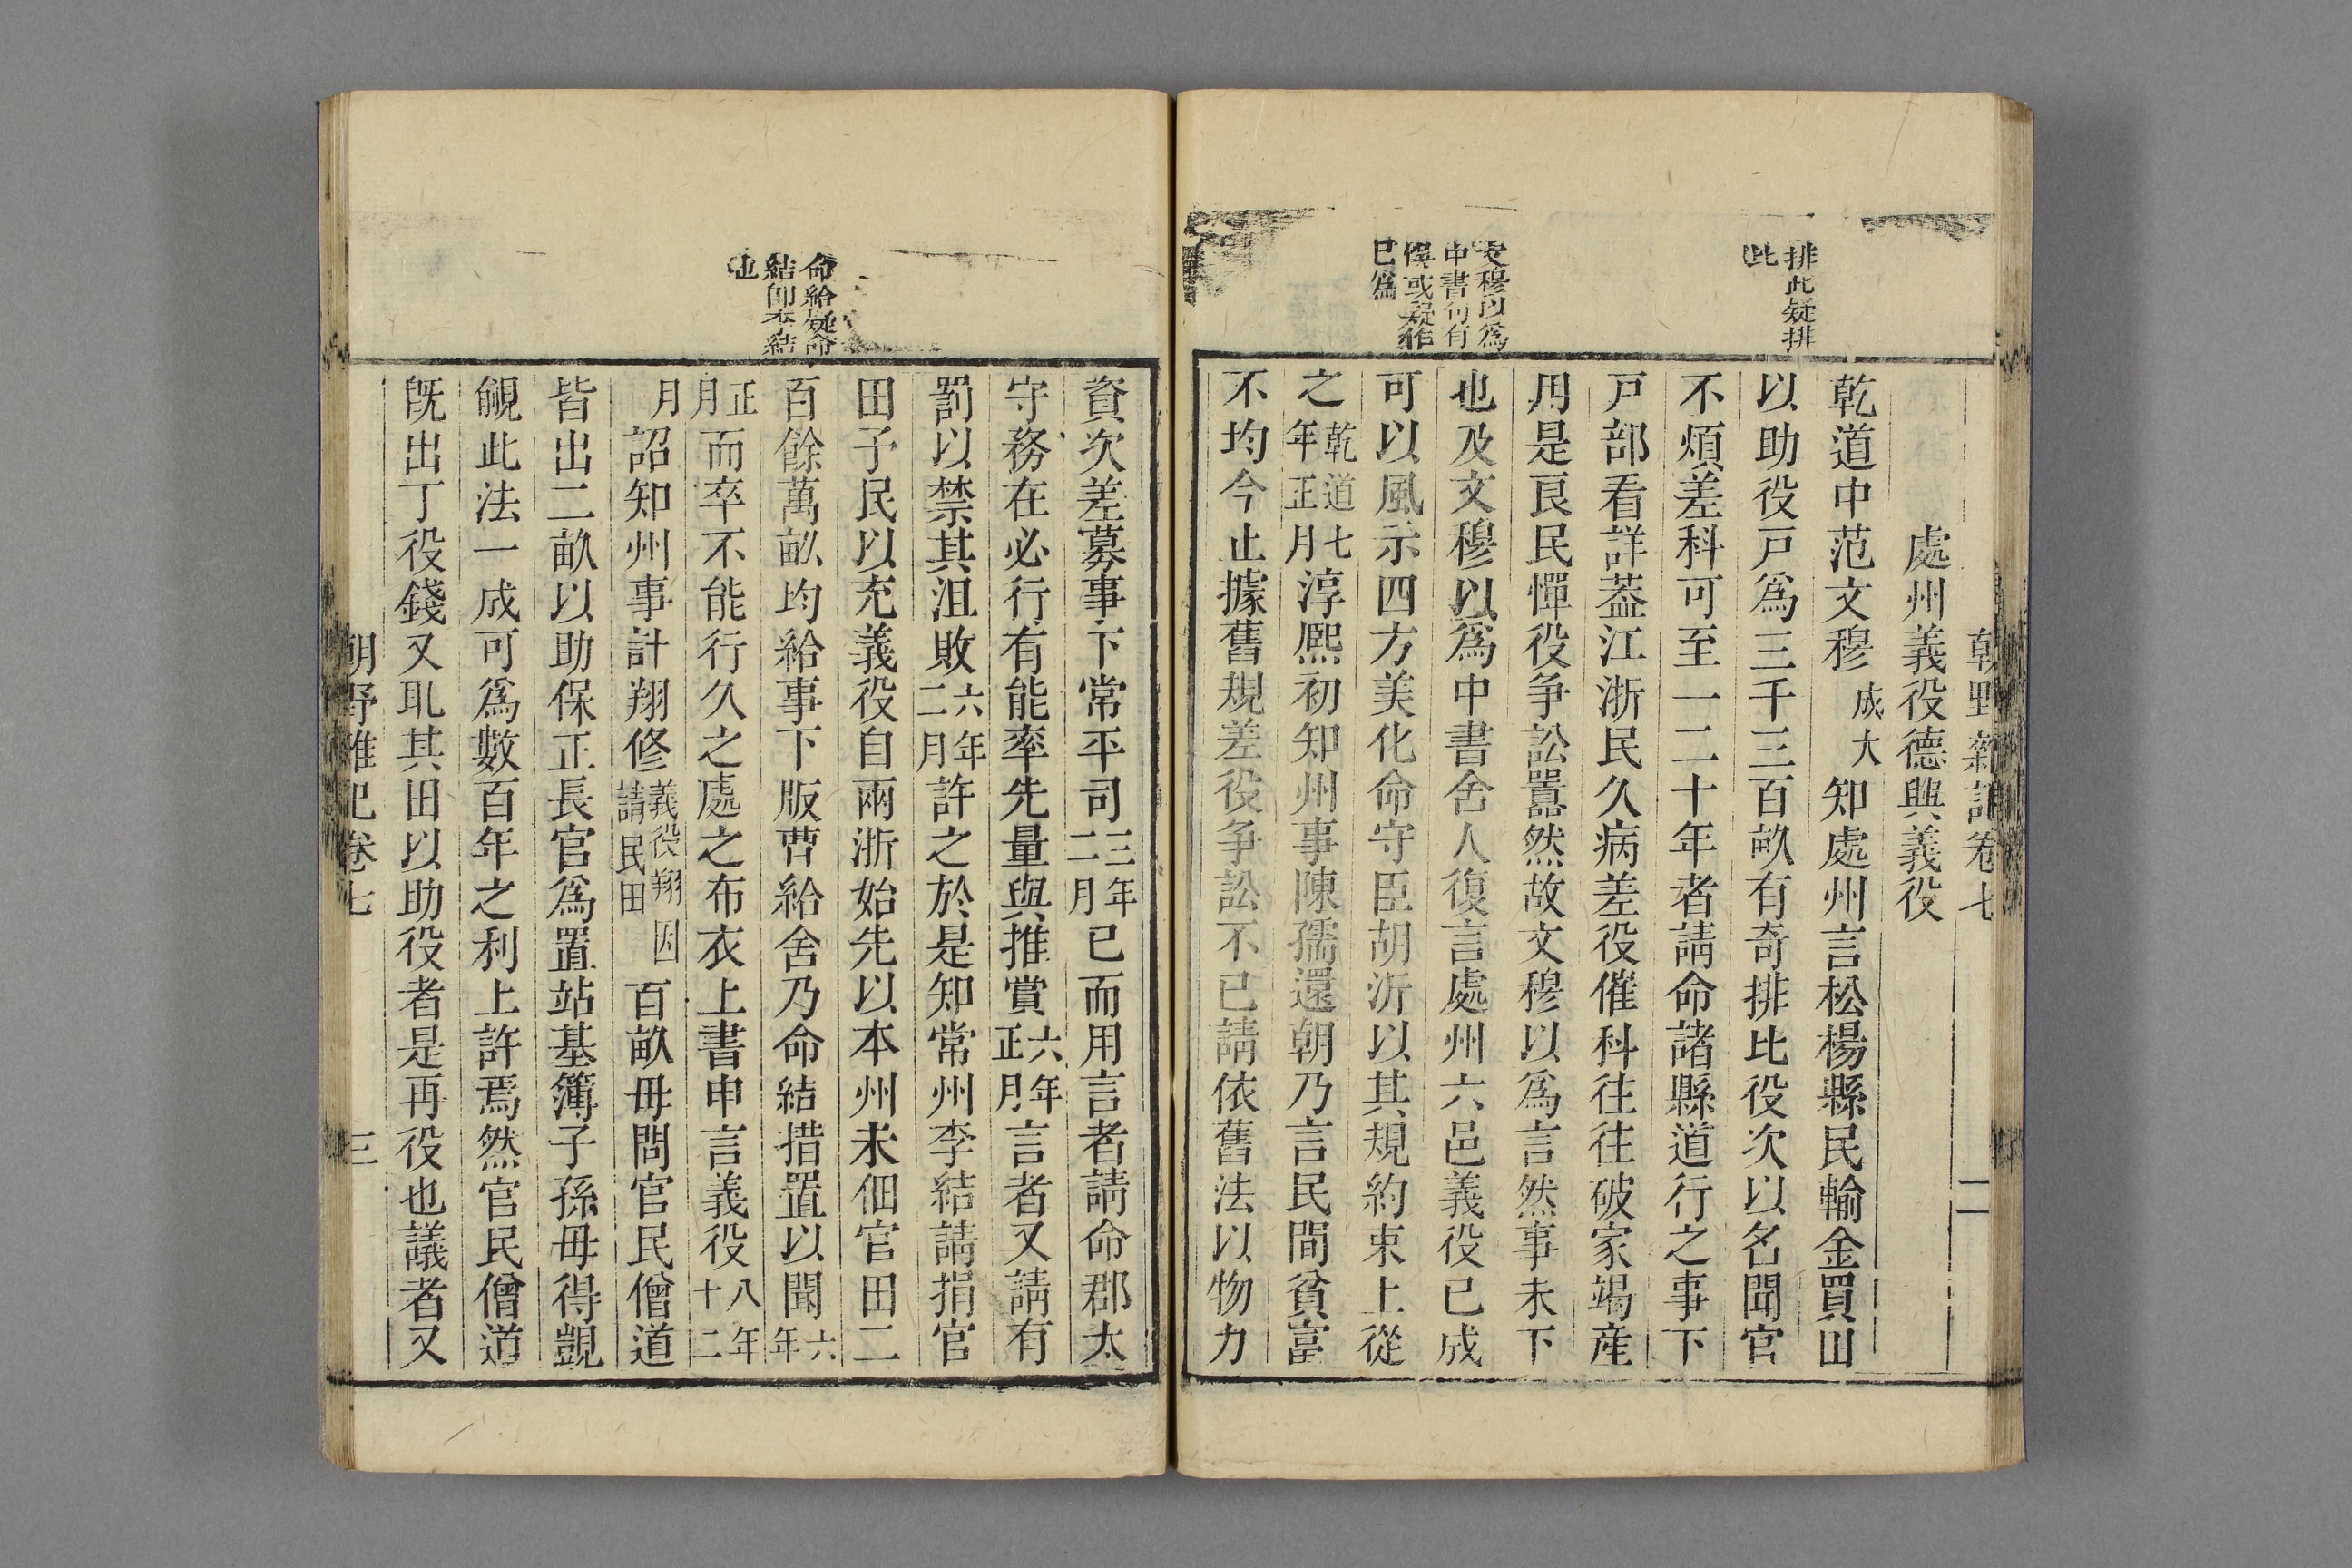 朝野雜記卷七
二
處州義役德興義役
乾道中范文穆成大知處州言松楊縣民輸金買田
以助役戸爲三千三百畝有奇排比役次以名聞官
不煩差科可至一二十年者請命諸縣道行之事下
戸部看詳葢江浙民久病差役催科往往破家竭産
用是良民憚役争訟囂然故文穆以爲言然事未下
也及文穆以爲中書舍人復言處州六邑義役已成
可以風示四方美化命守臣胡沂以其規約束上從
之乾道七年正月淳熈初知州事陳孺還朝乃言民間貧富
不均今止據舊規差役争訟不已請依舊法以物力
排此疑排
比
文穆以爲
中書句有
悞或疑作
已爲
資次差募事下常平司三年二月已而用言者請命郡太
守務在必行有能率先量與推賞六年正月言者又請有
罰以禁其沮敗六年二月許之於是知常州李結請捐官
田予民以充義役自兩浙始先以本州未佃官田二
百餘萬畝均給事下版曹給舍乃命結措置以聞六年
正月而卒不能行久之處之布衣上書申言義役八年十二
月詔知州事計翔修義役翔因請民田百畝毋問官民僧道
皆出二畝以助保正長官爲置站基簿子孫毋得覬
覦此法一成可爲數百年之利上許焉然官民僧道
旣出丁役錢又耴其田以助役者是再役也議者又
朝野雜記卷七
三
命給疑命
結卽李結
也